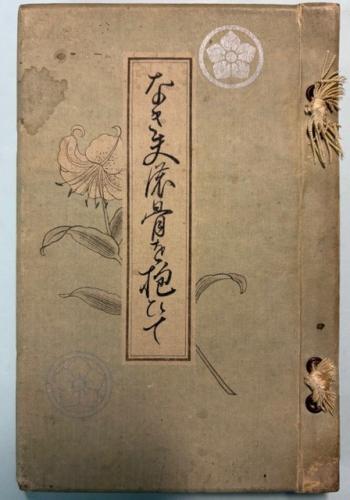 なき夫の骨を抱いて